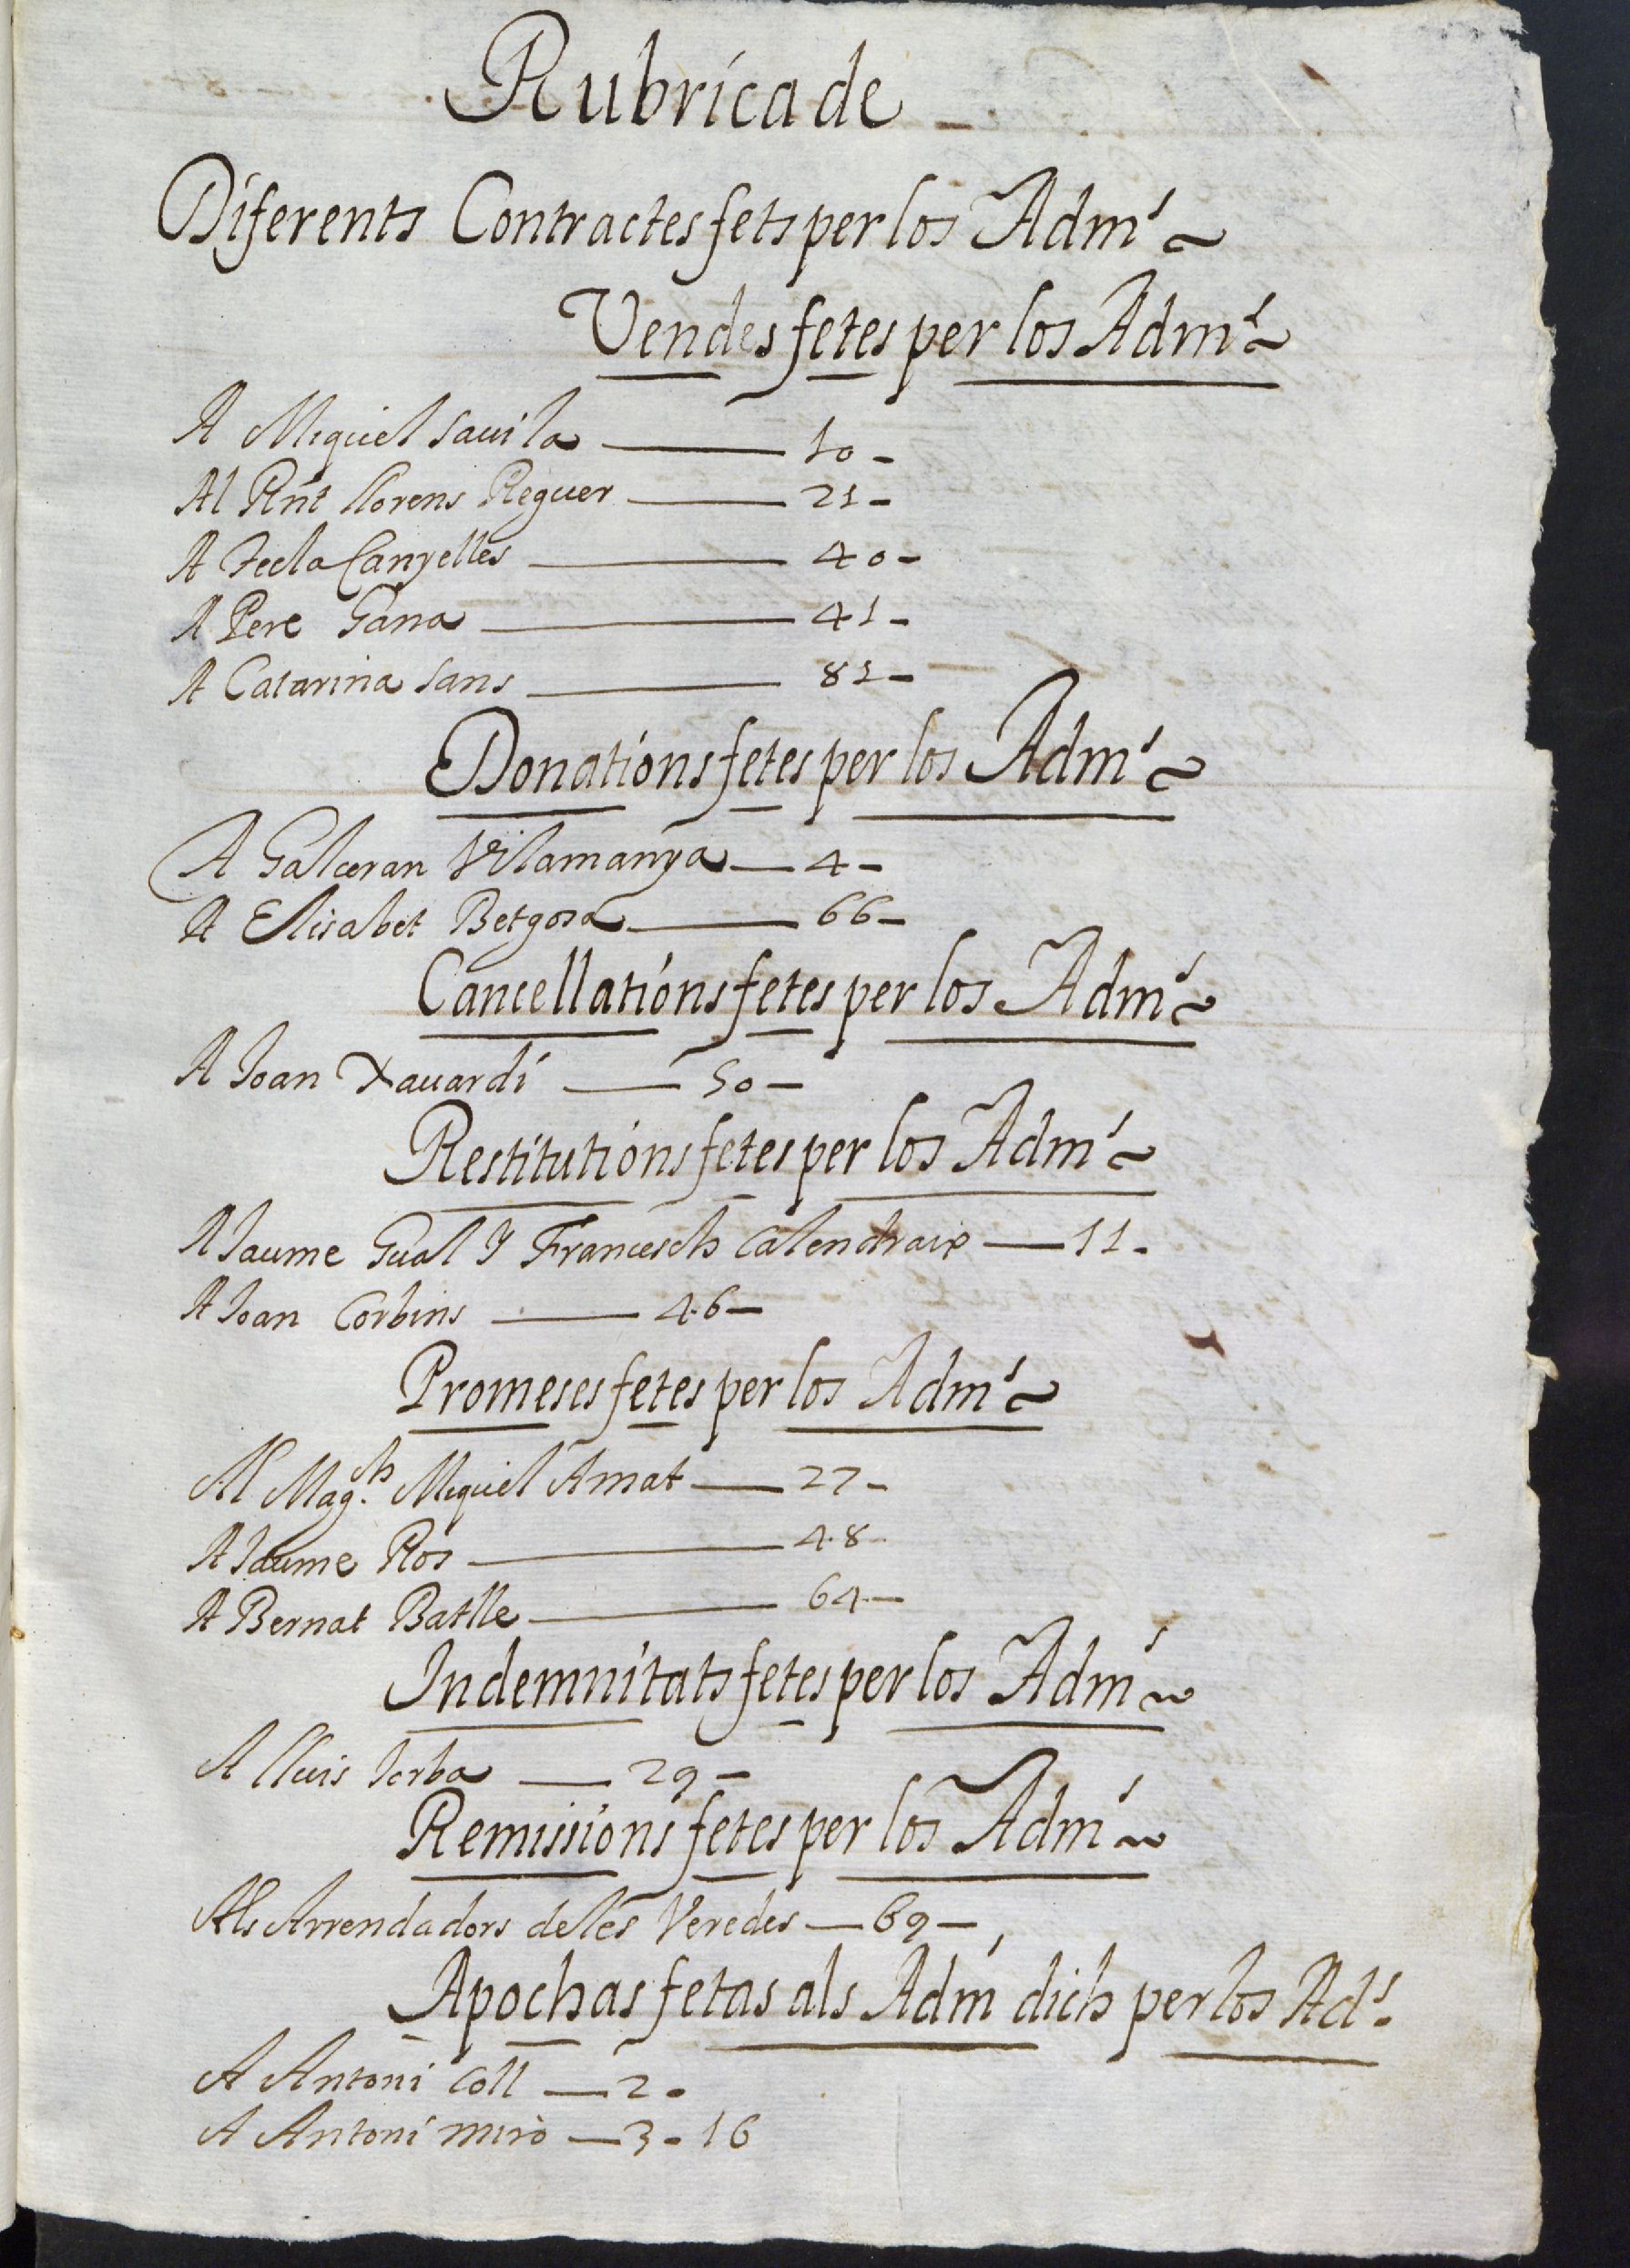 Rubrica de
Diferents Contractes fets per los Adm.s
Vendes fetes per los Adm.s
A Miquel Savila — 10 -
Al Rnt llorens Reguer — 21 -
A Tecla Canyelles — 40 -
A Pere Gana — 41 -
A Catarina Sans — 81 -
Donations fetes per los Adm.s
A Galceran Vilamanya — 4 -
A Elisabet Betgosa — 66 -
Cancellations fetes per los Adm.s
A Joan Xauardi — 50 -
Restitutions fetes per los Adm.s
A Jaume Gual y Francesch Calendraix — 11 -
A Joan Corbins — 46 -
Promeses fetes per los Adm.s
Al Mag.ch Miquel Amat — 27 -
A Jaume Ros — 48 -
A Bernat Batlle — 64 -
Indemnitats fetes per los Adm.s
A lluis Jorba — 29 -
Remissions fetes per los Adm.s
Als Arrendadors de les Veredes — 69 -
Apochas fetas als Adm dich per los Ad.s
A Antoni Coll — 2 -
A Antoni miro — 3 - 16